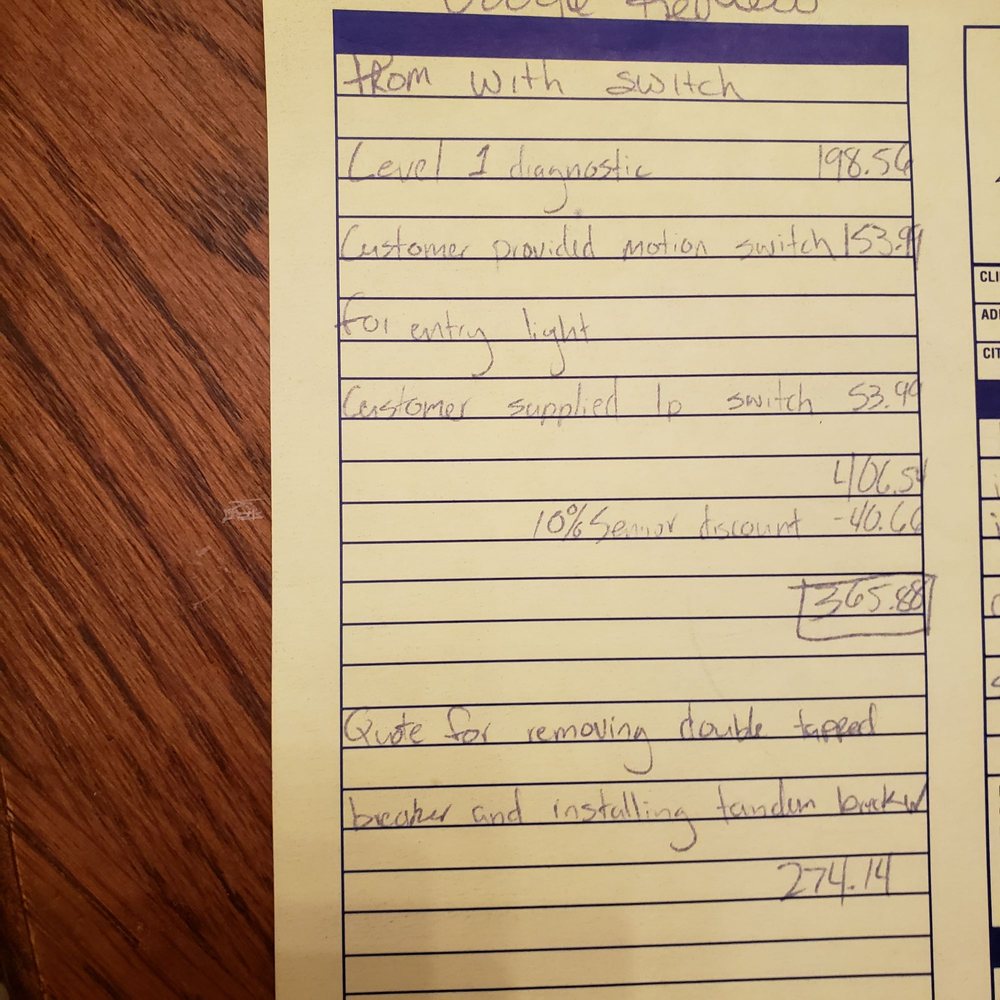 Google
from with switch
Level 1 diagnostic 198.56
Customer provided motion switch 153.99
for entry light
Customer supplied 1p switch 53.99
406.54
10% Senior discount -40.66
365.88
Quote for removing double tapped
breaker and installing tandem breaker
274.14
CLI
AD
CIT